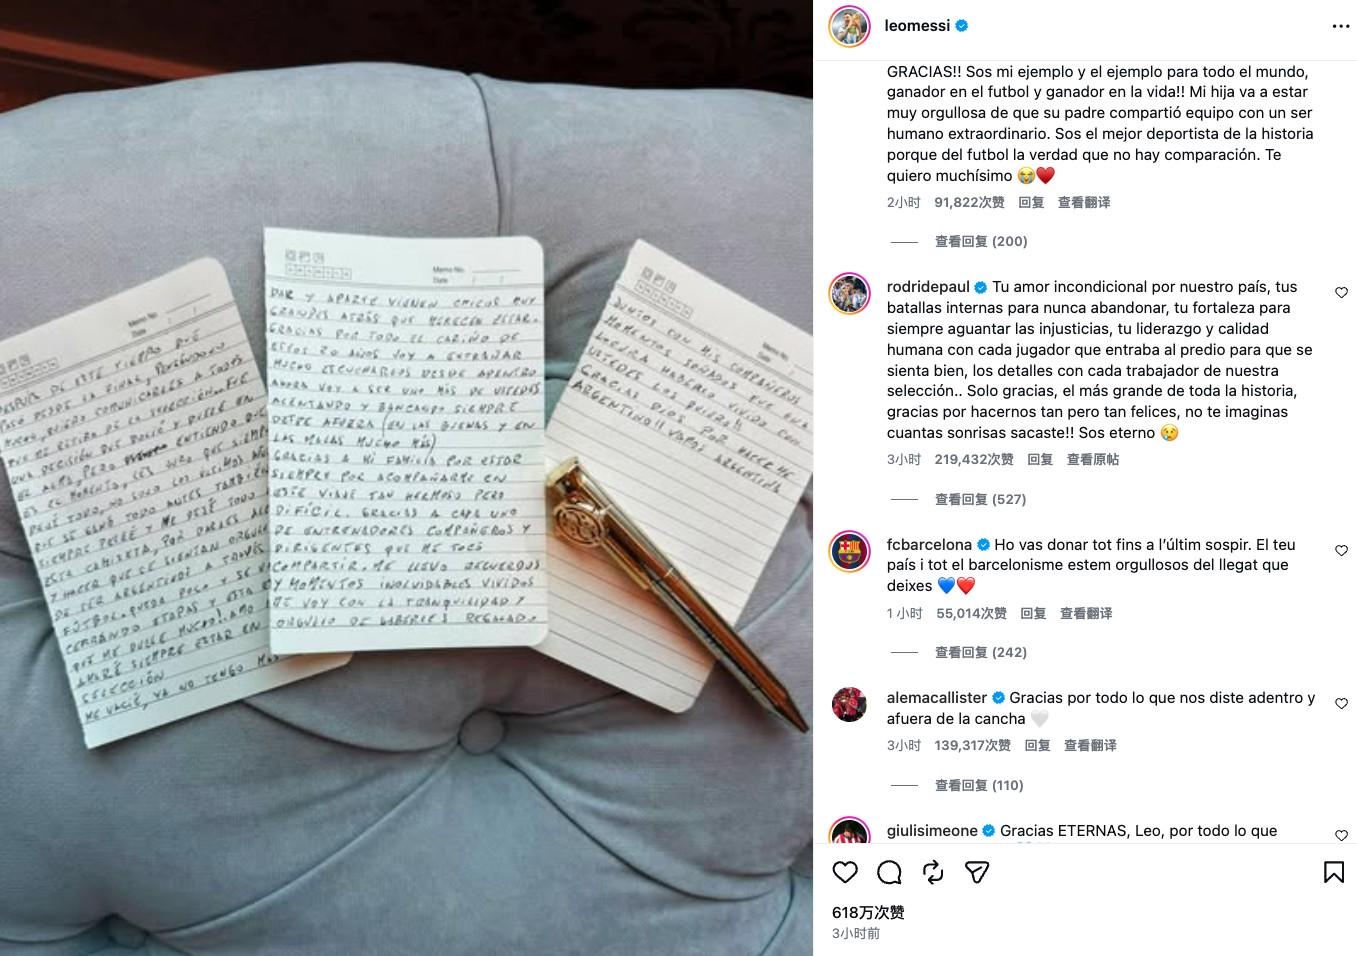 Memo No.
Date
DESPUES DE ESTE TIEMPO QUE
PASO DESDE LA FINAL, PENSANDOLO
MUCHO, QUIERO COMUNICARLES A TODOS
QUE ME RETIRO DE LA SELECCION. FUE
UNA DECISIÓN QUE DOLIÓ Y DUELE EN
EL ALMA, PERO ENTIENDO QUE
ES EL MOMENTO. LES JURO QUE SIEMPRE
DEJÉ TODO, NO SOLO LOS ULTIMOS
QUE SE GANÓ TODO ANTES TAMBIEN
SIEMPRE PELEÉ Y ME DEJÉ TODO
ESTA CAMISETA, POR DARLES
Y HACER QUE SE SIENTAN
DE SER ARGENTINO A TRAVÉS
FÚTBOL. QUEDA POCO Y SE
CERRANDO ETAPAS Y ESTA
QUE ME DUELE MUCHO! AMO
AMARÉ SIEMPRE ESTAR EN
SELECCIÓN
ME VACIÉ, YA NO TENGO MAS
Memo No.
Date
DAR Y APARTE VIENEN CHICOS MUY
GRANDES ATRÁS QUE MERECEN ESTAR.
GRACIAS POR TODO EL CARIÑO DE
ESTOS 20 AÑOS VOY A EXTRAÑAR
MUCHO ESCUCHARLOS DESDE ADENTRO
AHORA VOY A SER UNO MÁS DE USTEDES
ALENTANDO Y BANCANDO SIEMPRE
DESDE AFUERA (EN LAS BUENAS Y EN
LAS MALAS MUCHO MÁS)
GRACIAS A MI FAMILIA POR ESTAR
SIEMPRE POR ACOMPAÑARME EN
ESTE VIAJE TAN HERMOSO PERO
DIFÍCIL. GRACIAS A CADA UNO
DE ENTRENADORES COMPAÑEROS Y
DIRIGENTES QUE ME TOCÓ
COMPARTIR. ME LLEVO RECUERDOS
Y MOMENTOS INOLVIDABLES VIVIDOS
ME VOY CON LA TRANQUILIDAD Y
ORGULLO DE HABERLES REGALADO
Memo No.
Date
JUNTOS CON MIS COMPAÑEROS
MOMENTOS SOÑADOS. FUE UNA
LOCURA HABERLO VIVIDO CON
USTEDES LOS QUIERO!!
GRACIAS DIOS POR HACERME
ARGENTINO!! VAMOS ARGENTINA
leomessi
GRACIAS!! Sos mi ejemplo y el ejemplo para todo el mundo,
ganador en el futbol y ganador en la vida!! Mi hija va a estar
muy orgullosa de que su padre compartió equipo con un ser
humano extraordinario. Sos el mejor deportista de la historia
porque del futbol la verdad que no hay comparación. Te
quiero muchísimo 😭♥️
2小时 91,822次赞 回复 查看翻译
查看回复 (200)
rodridepaul Tu amor incondicional por nuestro país, tus
batallas internas para nunca abandonar, tu fortaleza para
siempre aguantar las injusticias, tu liderazgo y calidad
humana con cada jugador que entraba al predio para que se
sienta bien, los detalles con cada trabajador de nuestra
selección.. Solo gracias, el más grande de toda la historia,
gracias por hacernos tan pero tan felices, no te imaginas
cuantas sonrisas sacaste!! Sos eterno 😢
3小时 219,432次赞 回复 查看原帖
查看回复 (527)
fcbarcelona Ho vas donar tot fins a l’últim sospir. El teu
país i tot el barcelonisme estem orgullosos del llegat que
deixes 💙❤️
1 小时 55,014次赞 回复 查看翻译
查看回复 (242)
alemacallister Gracias por todo lo que nos diste adentro y
afuera de la cancha 🤍
3小时 139,317次赞 回复 查看翻译
查看回复 (110)
giulisimeone Gracias ETERNAS, Leo, por todo lo que
618万次赞
3小时前